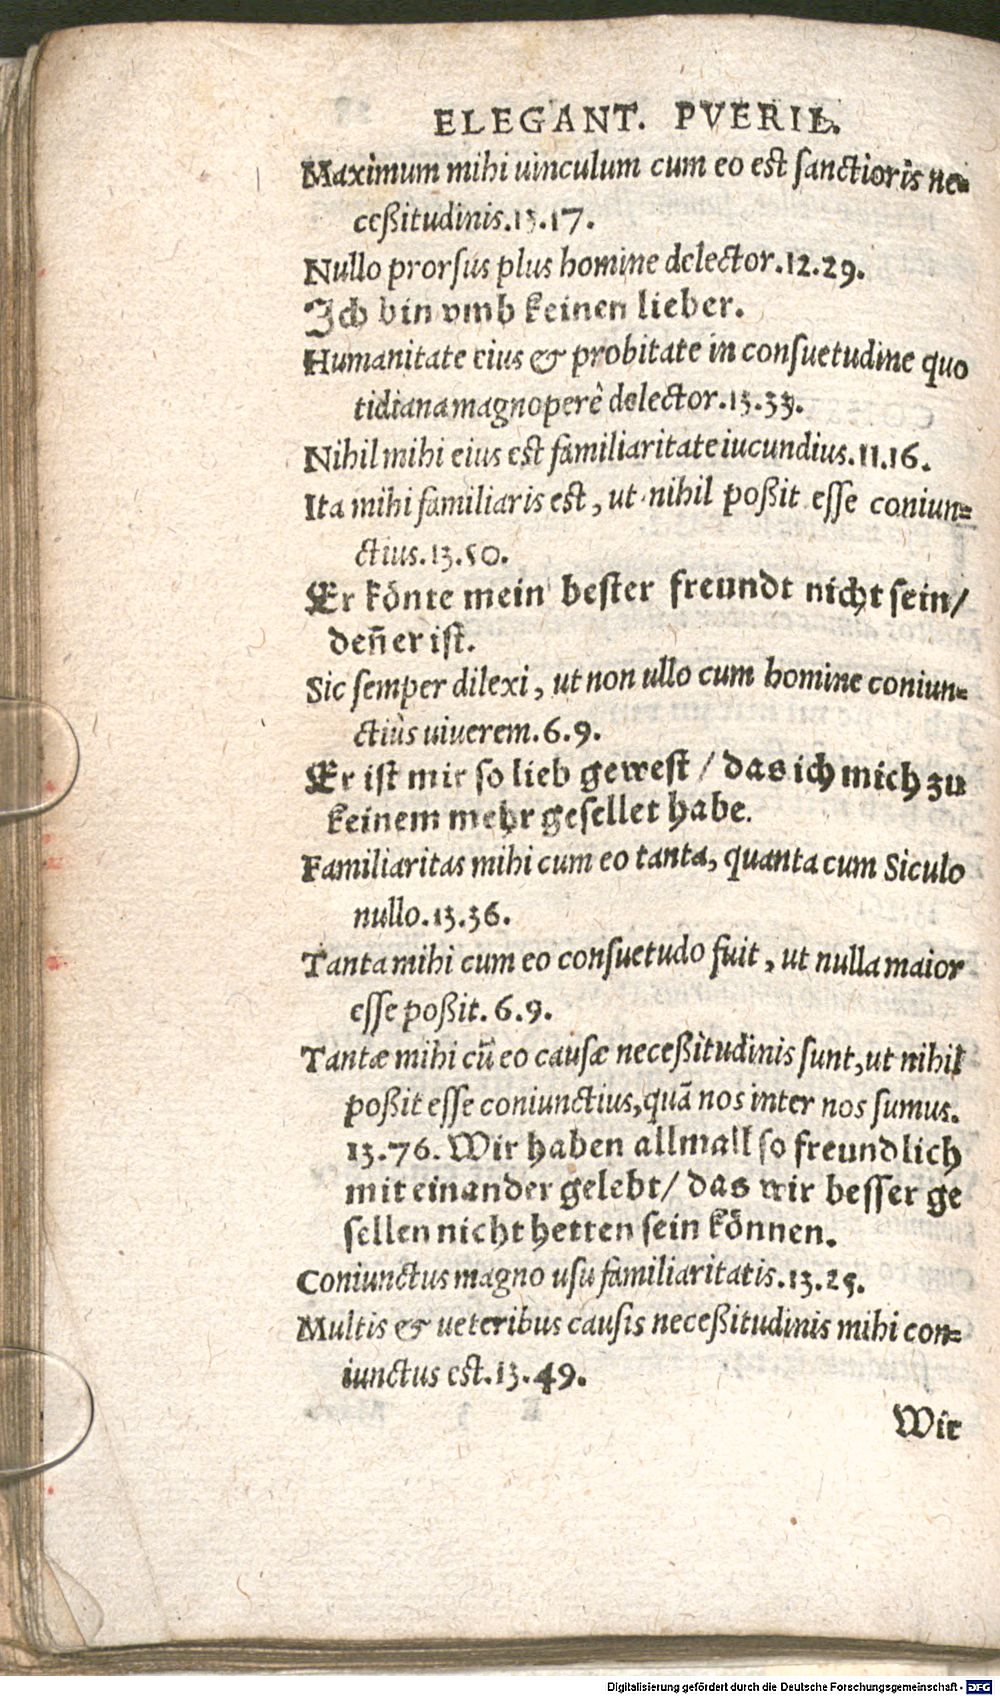 ELEGANT. PVERIL.
Maximum mihi uinculum cum eo est sanctioris ne-
ceßitudinis.13.17.
Nullo prorsus plus homine delector.12.29.
Ich bin vmb keinen lieber.
Humanitate eius & probitate in consuetudine quo
tidiana magnoperè delector.13.33.
Nihil mihi eius est familiaritate iucundius.11.16.
Ita mihi familiaris est, ut nihil poßit esse coniun-
ctius.13.50.
Er könte mein bester freundt nicht sein/
den̄ er ist.
Sic semper dilexi, ut non ullo cum homine coniun-
ctiùs uiuerem.6.9.
Er ist mir so lieb gewest / das ich mich zu
keinem mehr gesellet habe.
Familiaritas mihi cum eo tanta, quanta cum Siculo
nullo.13.36.
Tanta mihi cum eo consuetudo fuit, ut nulla maior
esse poßit. 6.9.
Tantæ mihi cū eo causæ neceßitudinis sunt, ut nihil
poßit esse coniunctius, quā nos inter nos sumus.
13.76. Wir haben allmall so freundlich
mit einander gelebt/ das wir besser ge
sellen nicht hetten sein können.
Coniunctus magno usu familiaritatis.13.25.
Multis & ueteribus causis neceßitudinis mihi con-
iunctus est.13.49.
Wir
Digitalisierung gefördert durch die Deutsche Forschungsgemeinschaft - DFG